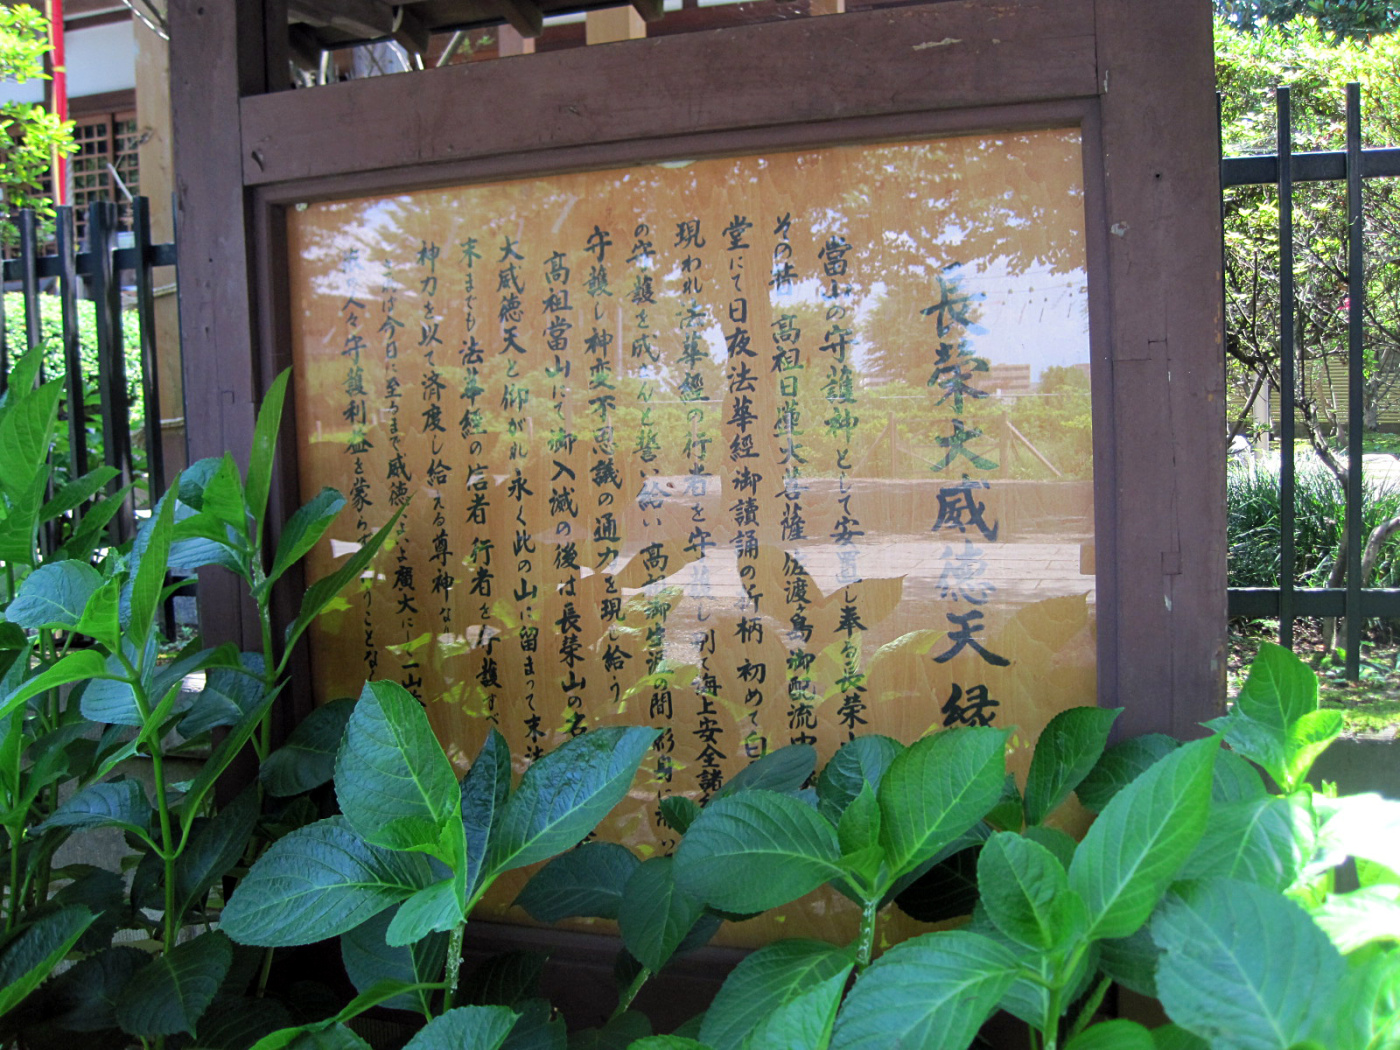 長榮大威徳天縁
當山の守護神として安置し奉る長榮
その昔 高祖日蓮大菩薩 佐渡島御配流中
堂にて日夜法華經御讀誦の折柄 初めて白
現われ法華經の行者を守護し 別て海上安全諸
の守護を成さんと誓い給い 高祖御生涯の間 影身に添い
守護し神変不思議の通力を現し給う
高祖當山にて御入滅の後は長榮山の名
大威徳天と仰がれ永く此の山に留まって末法
末までも法華經の信者 行者を守護すべ
神力を以て済度し給える尊神な
ば今日に至るまで威徳いよいよ廣大に 一山
人々守護利益を蒙ら うことな